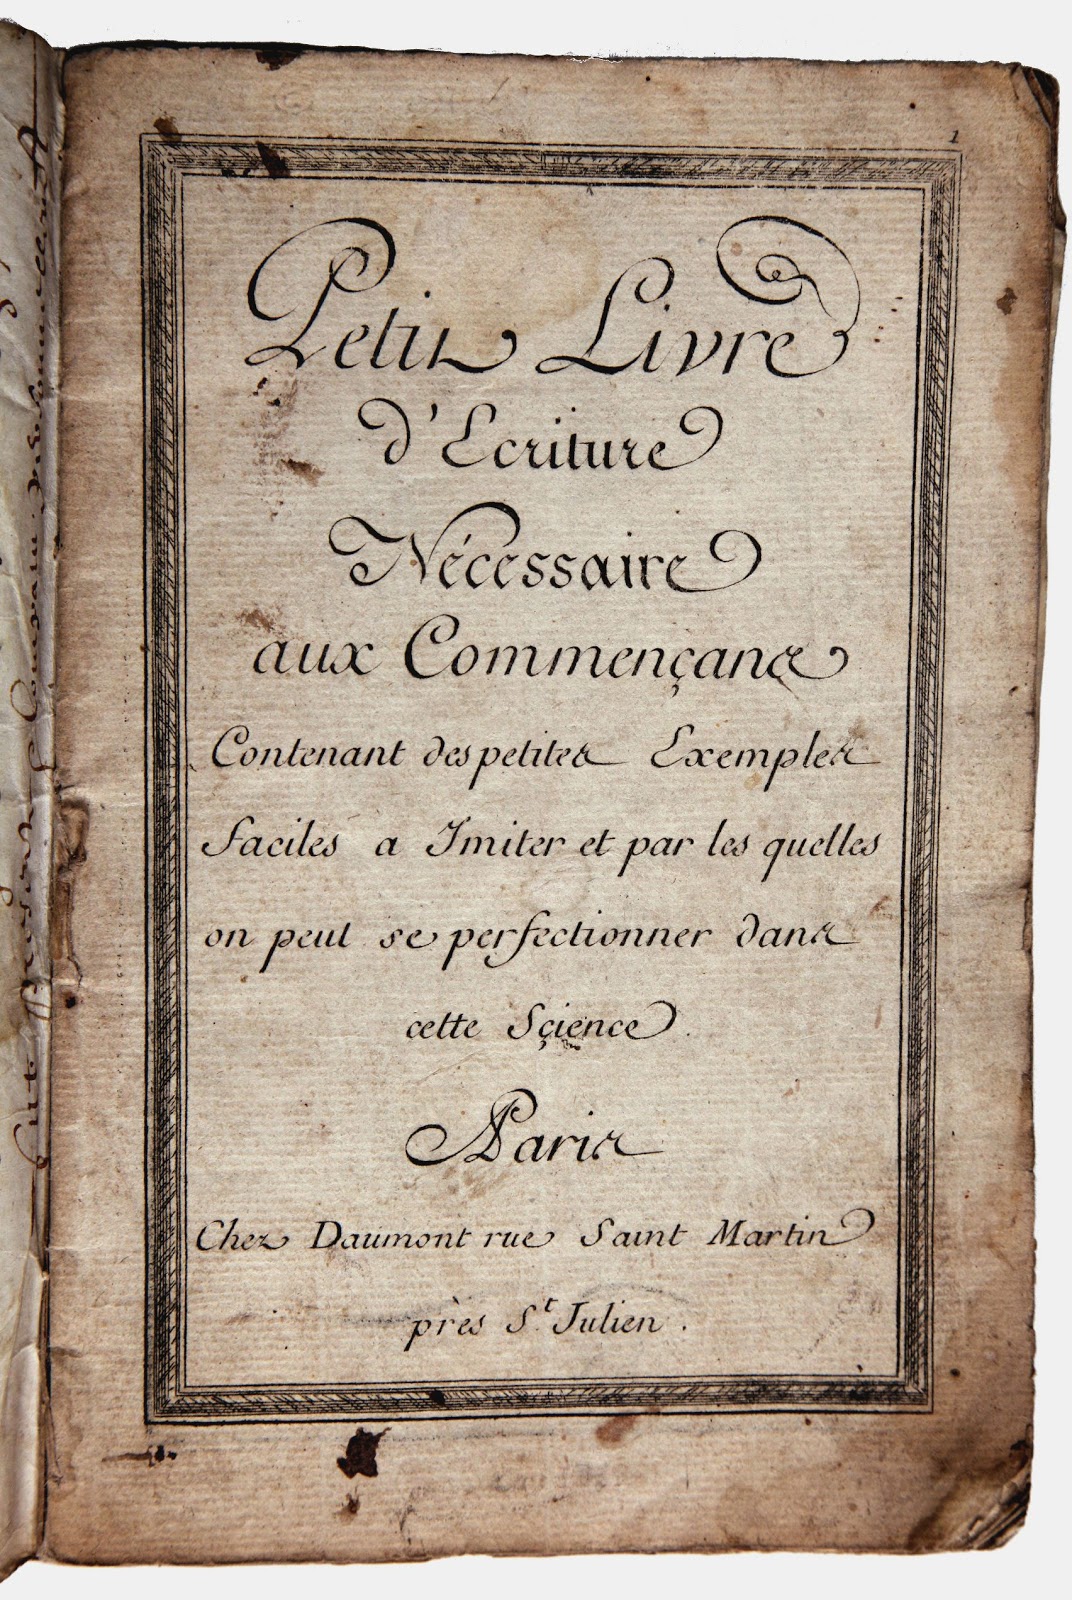 1
Petit Livre
d'Ecriture
Nécessaire
aux Commençans
Contenant des petites Exemples
faciles a Imiter et par les quelles
on peut se perfectionner dans
cette Sçience.
Paris
Chez Daumont rue Saint Martin
près St. Julien.